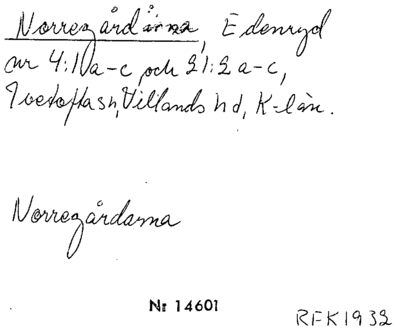 Norregårdarna, Edenryd
nr 4:1 a-c och 21:2 a-c,
Ivetofta sn, Villands hd, K-län.
Norregårdarna
Nr 14601
RFK1932